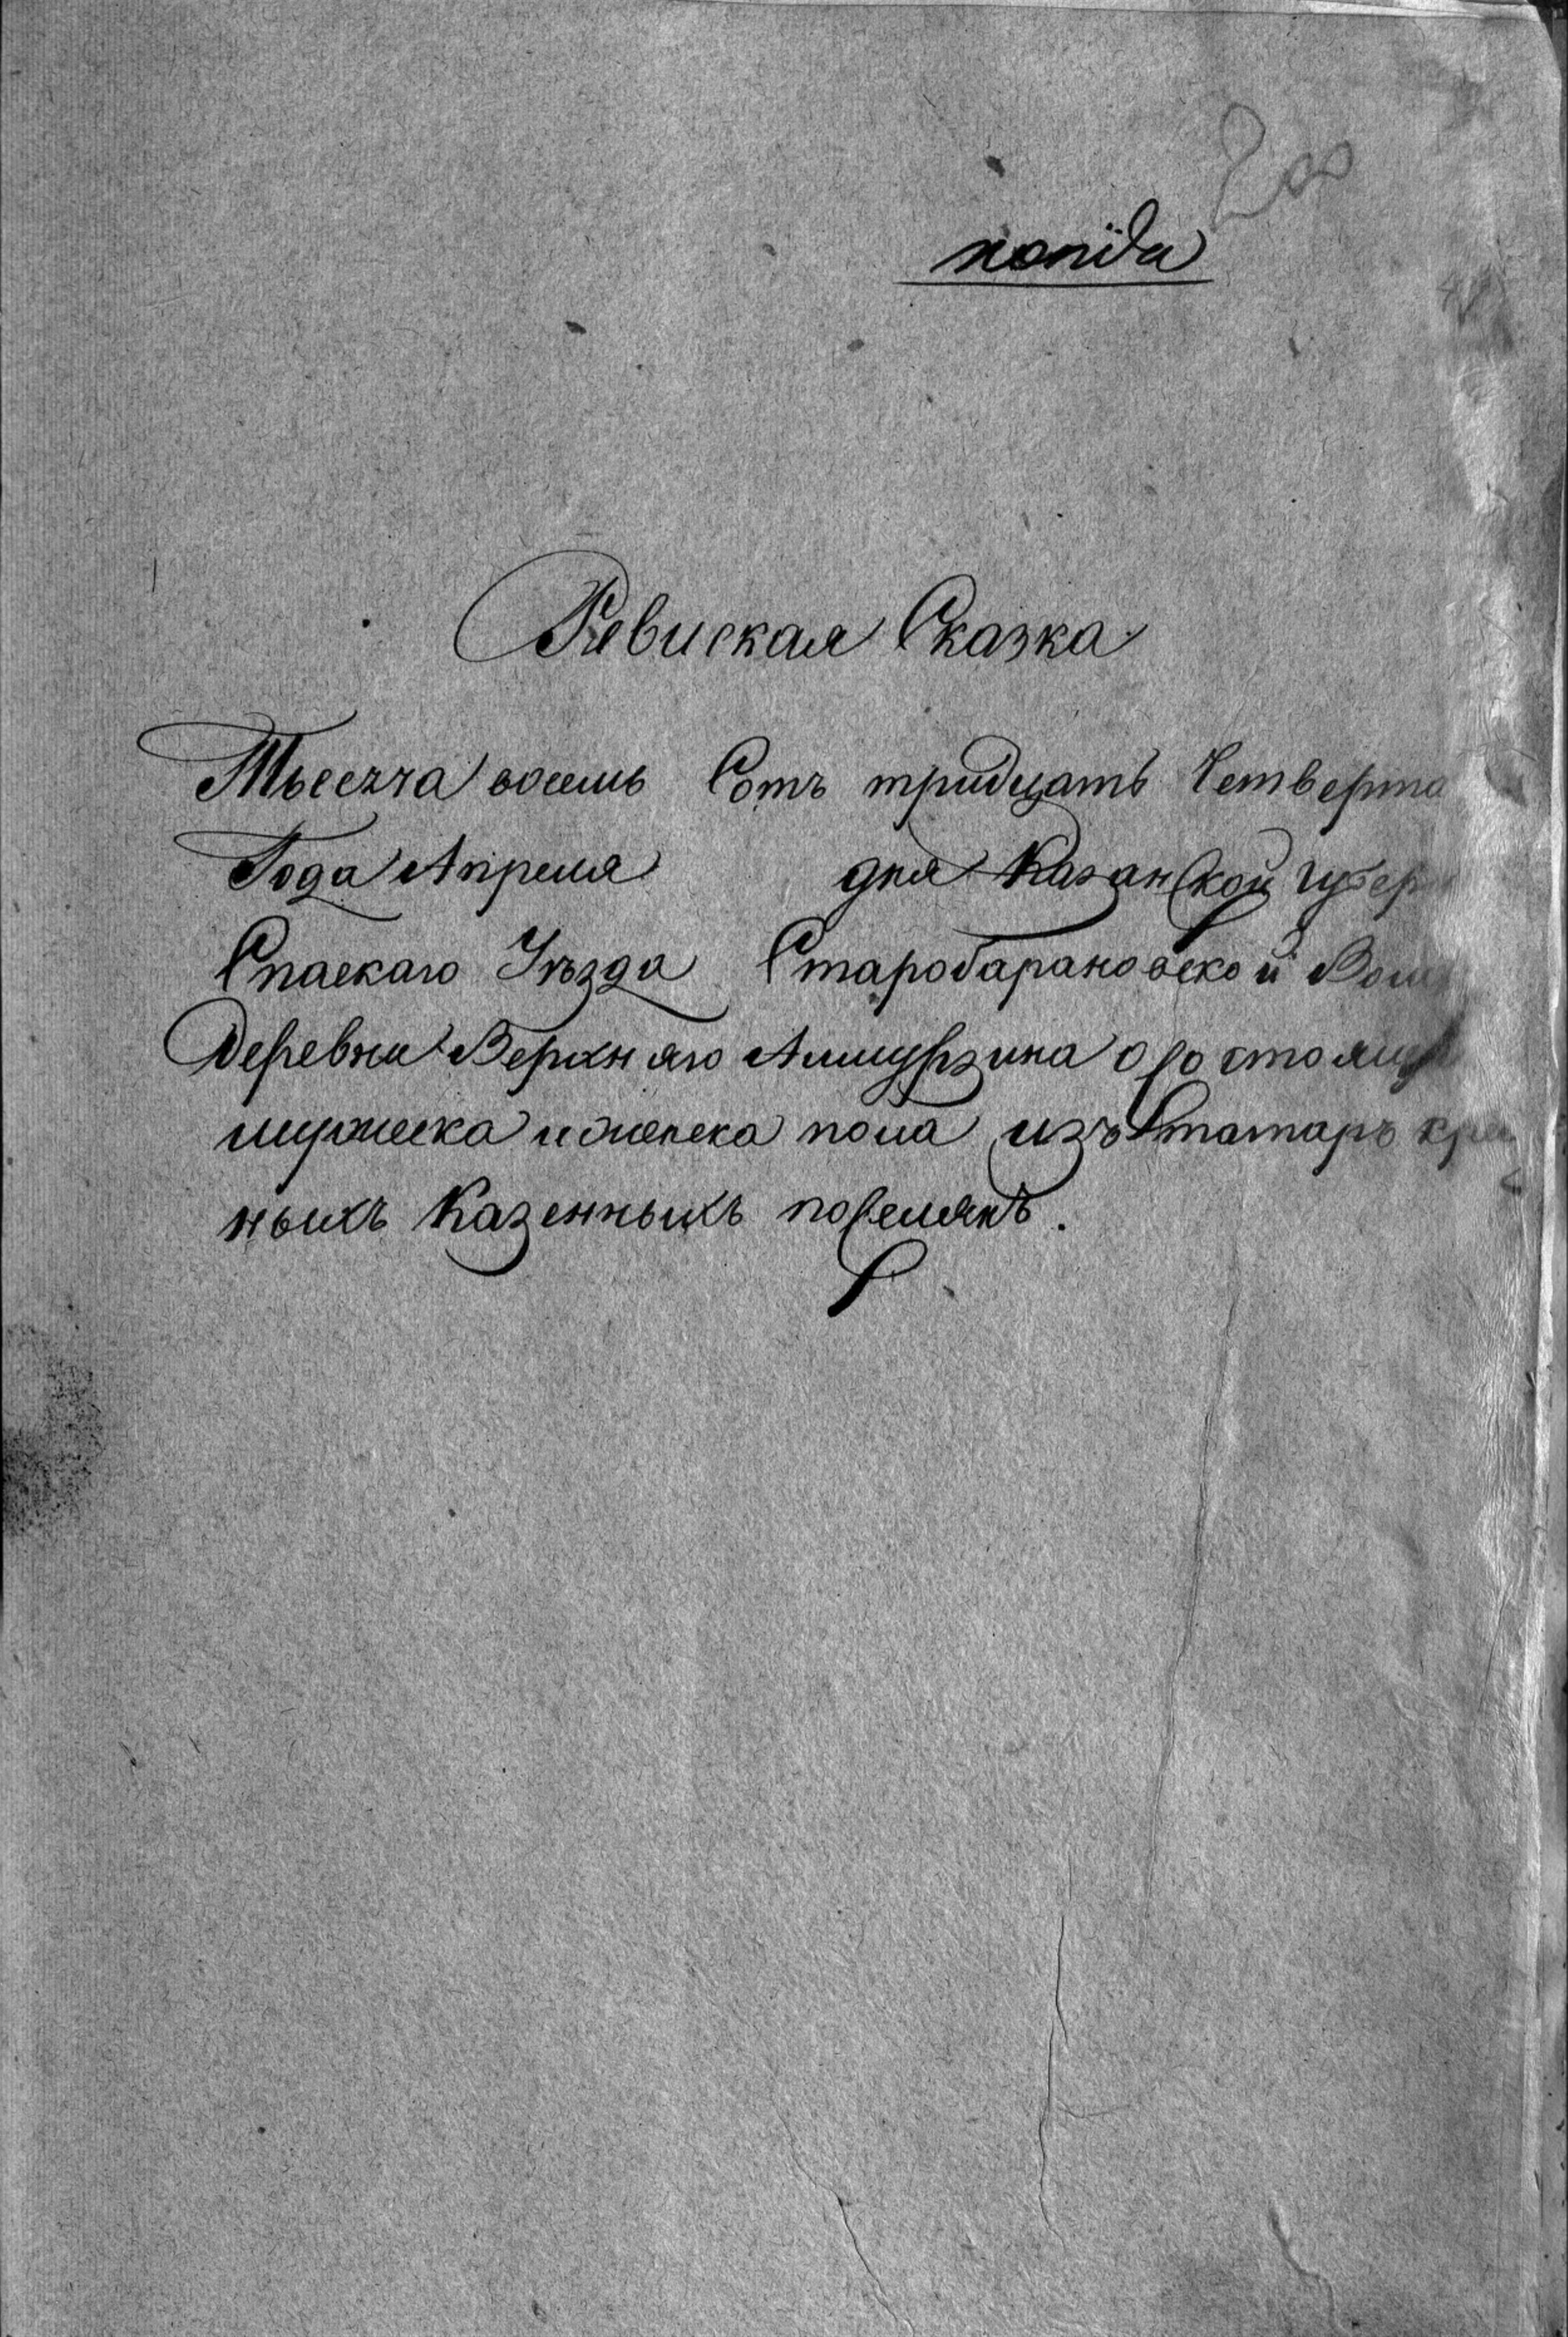 200
копiя
Ревиская Сказка
Тысезча восемь Сотъ тридцать Четверта
Года Апреля дня Казанской губер
Спаскаго Уѣзда Старобарановской Вол
Деревни Верхняго Алмурзина о состоящ
мужеска и женска пола изъ татаръ кре
ныхъ Казенныхъ поселянъ.